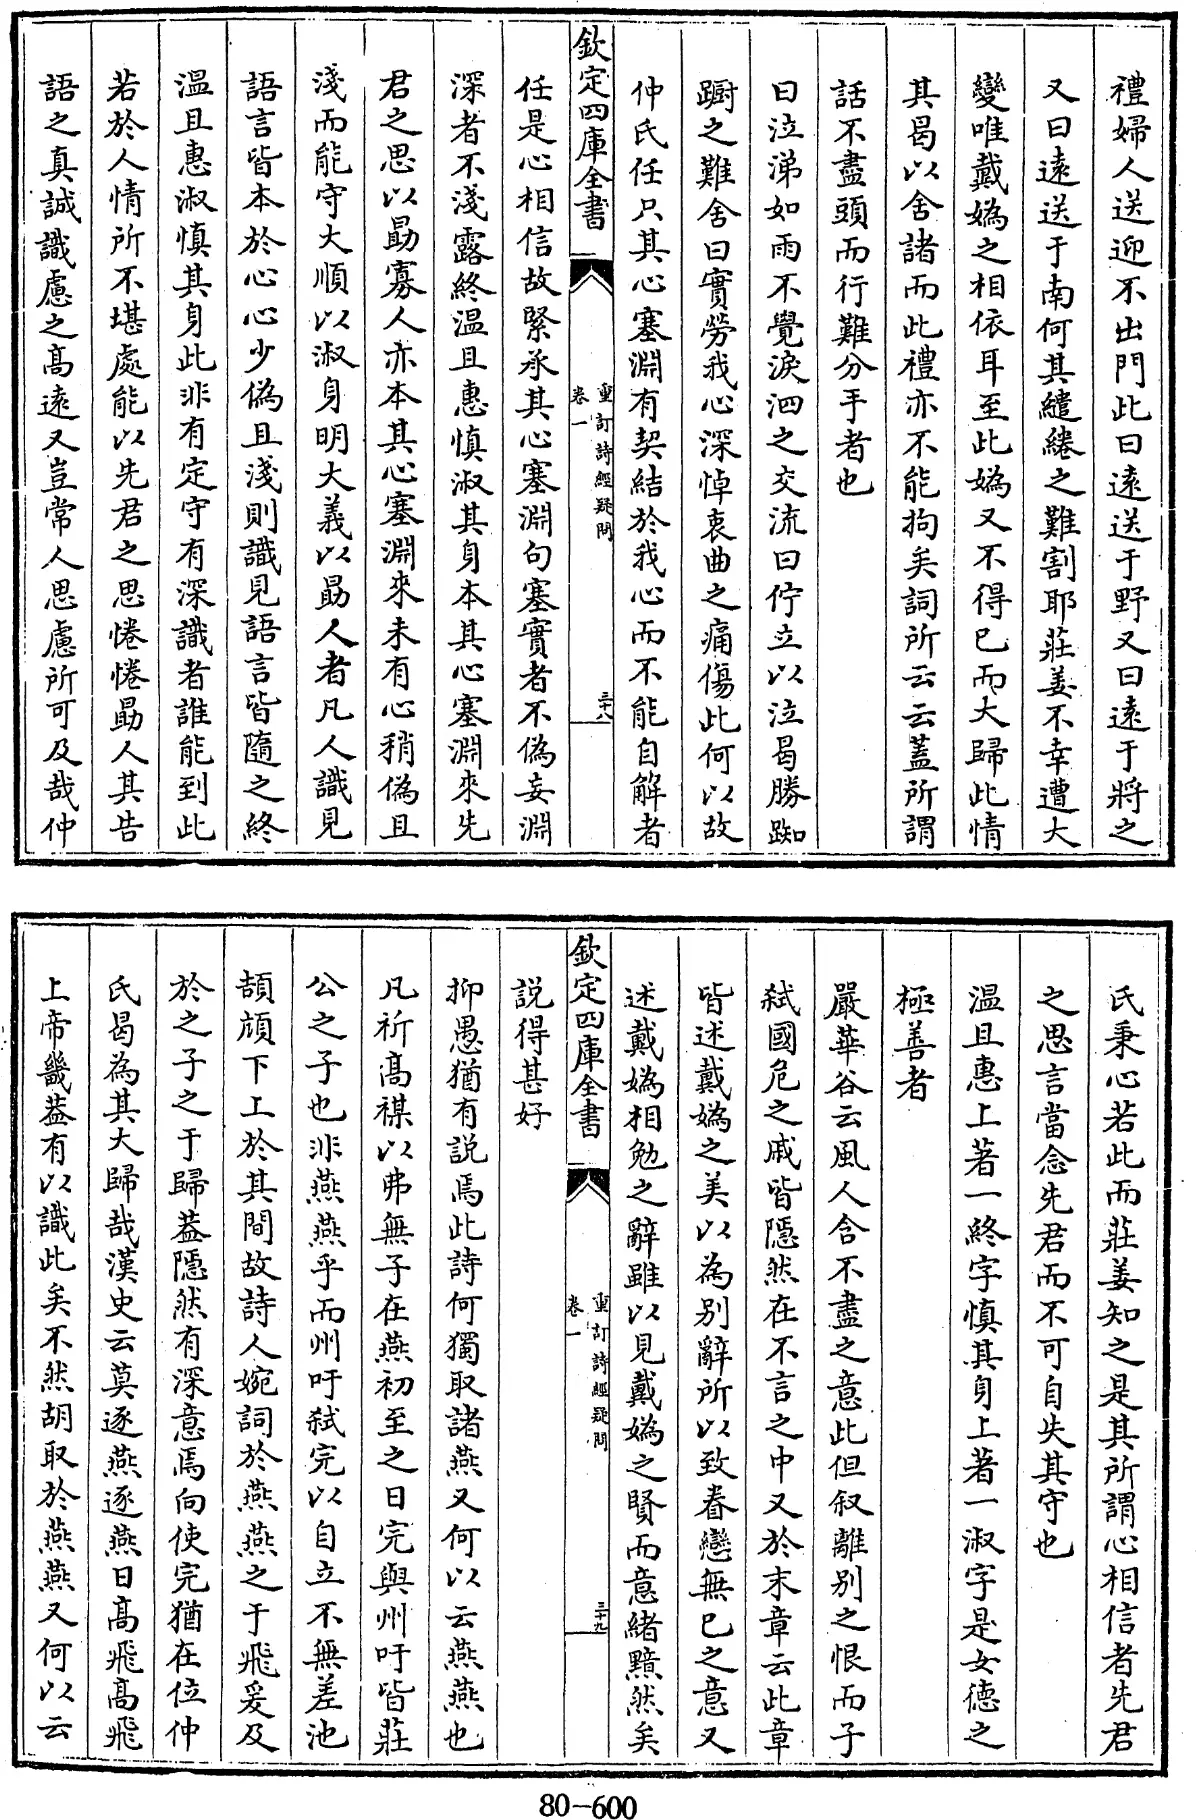 禮婦人送迎不出門此曰遠送于野又曰遠于將之
又曰遠送于南何其繾綣之難割耶莊姜不幸遭大
變唯戴媯之相依耳至此媯又不得已而大歸此情
其曷以舍諸而此禮亦不能拘矣詞所云云蓋所謂
話不盡頭而行難分手者也
曰泣涕如雨不覺淚泗之交流曰佇立以泣曷勝踟
蹰之難舍曰實勞我心深悼衷曲之痛傷此何以故
仲氏任只其心塞淵有契結於我心而不能自解者
欽定四庫全書
重訂詩經疑問
卷一
三十八
任是心相信故緊承其心塞淵句塞實者不偽妄淵
深者不淺露終溫且惠慎淑其身本其心塞淵來先
君之思以勗寡人亦本其心塞淵來未有心稍偽且
淺而能守大順以淑身明大義以勗人者凡人識見
語言皆本於心心少偽且淺則識見語言皆隨之終
溫且惠淑慎其身此非有定守有深識者誰能到此
若於人情所不堪處能以先君之思惓惓勗人其告
語之真誠識慮之高遠又豈常人思慮所可及哉仲
氏秉心若此而莊姜知之是其所謂心相信者先君
之思言當念先君而不可自失其守也
溫且惠上著一終字慎其身上著一淑字是女德之
極善者
嚴華谷云風人含不盡之意此但叙離別之恨而子
弑國危之戚皆隱然在不言之中又於末章云此章
皆述戴媯之美以為別辭所以致眷戀無已之意又
述戴媯相勉之辭雖以見戴媯之賢而意緒黯然矣
欽定四庫全書
重訂詩經疑問
卷一
三十九
説得甚好
抑愚猶有説焉此詩何獨取諸燕又何以云燕燕也
凡祈高禖以弗無子在燕初至之日完與州吁皆莊
公之子也非燕燕乎而州吁弑完以自立不無差池
頡頏下上於其間故詩人婉詞於燕燕之于飛爰及
於之子之于歸葢隱然有深意焉向使完猶在位仲
氏曷為其大歸哉漢史云莫逐燕逐燕日高飛高飛
上帝畿葢有以識此矣不然胡取於燕燕又何以云
80-600